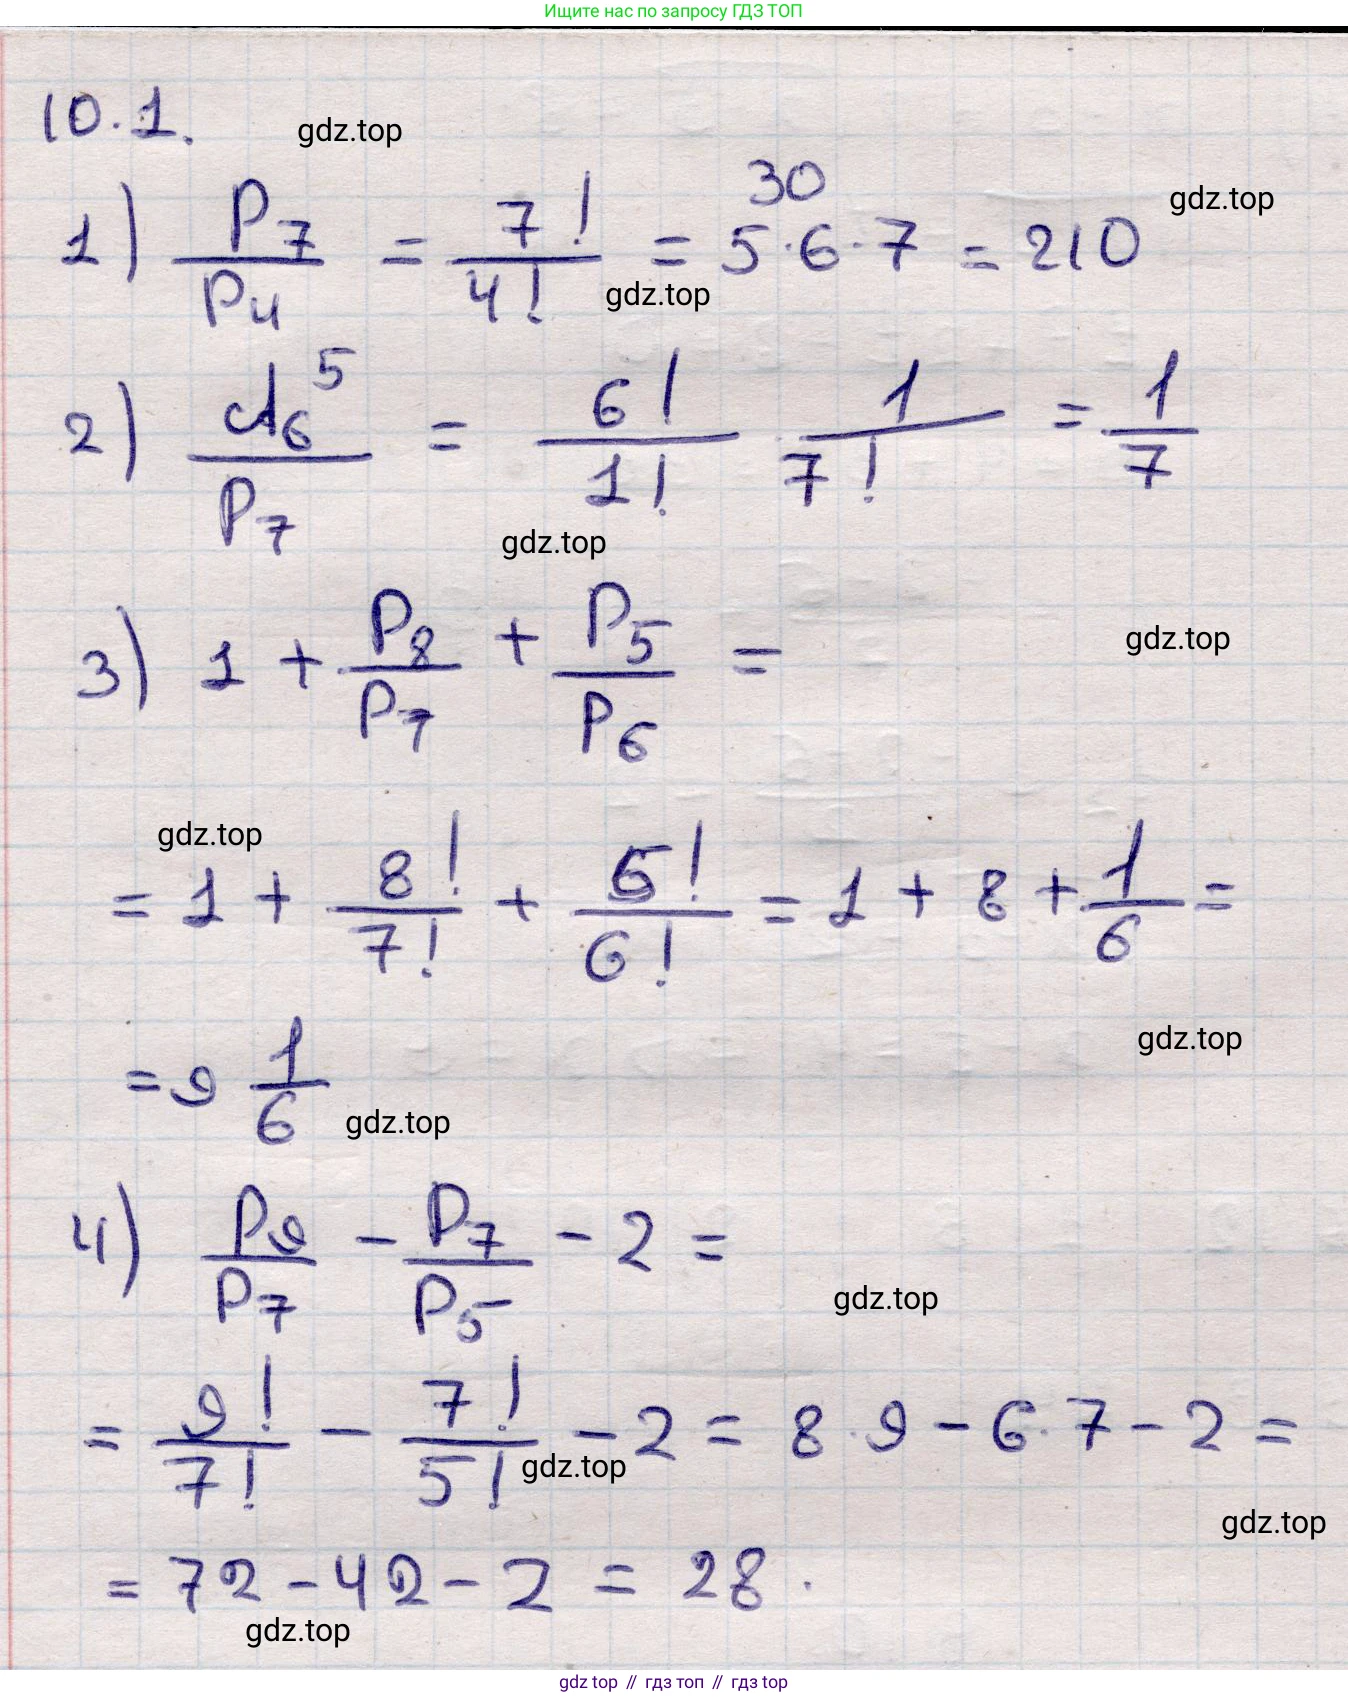 Ищите нас по запросу ГДЗ ТОП
10.1.
gdz.top
30
gdz.top
1) P₇/P₄ = 7!/4! = 5·6·7 = 210
gdz.top
2) A₆⁵/P₇ = 6!/1! 1/7! = 1/7
gdz.top
3) 1 + P₈/P₇ + P₅/P₆ =
gdz.top
gdz.top
= 1 + 8!/7! + 5!/6! = 1 + 8 + 1/6 =
gdz.top
= 9 1/6
gdz.top
4) P₉/P₇ - P₇/P₅ - 2 =
gdz.top
= 9!/7! - 7!/5! - 2 = 8·9 - 6·7 - 2 =
gdz.top
gdz.top
= 72 - 42 - 2 = 28.
gdz.top
gdz top // гдз топ // gdz top